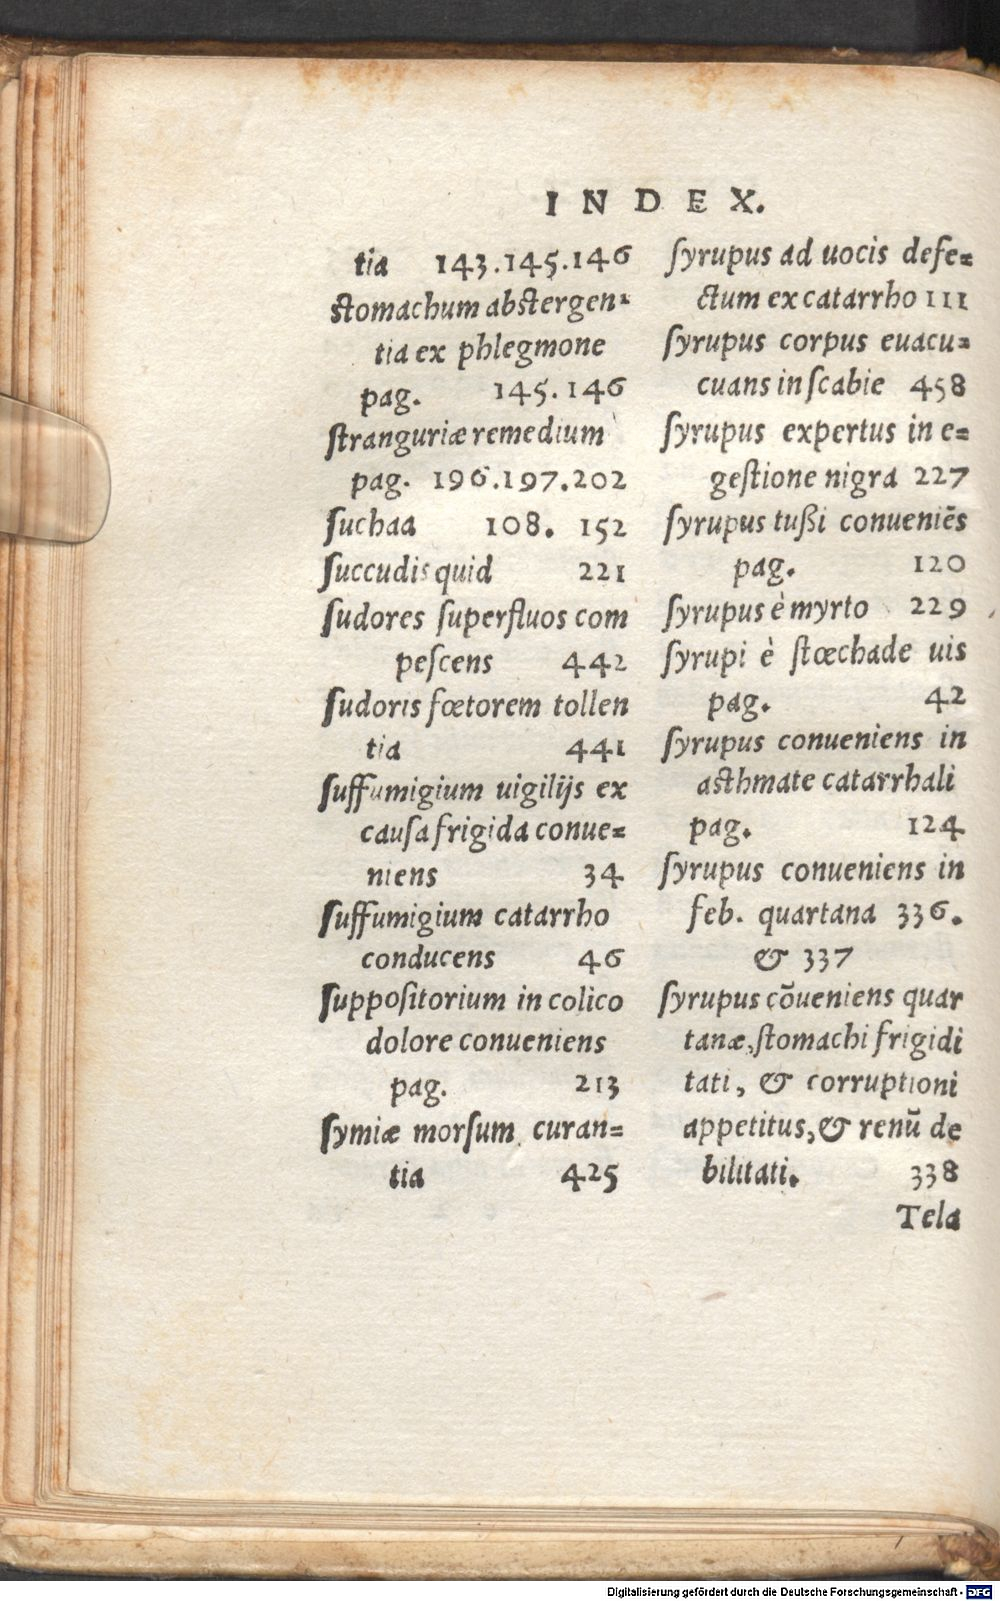 INDEX.
tia 143.145.146
stomachum abstergen-
tia ex phlegmone
pag. 145.146
ſtranguriæ remedium
pag. 196.197.202
ſuchaa 108. 152
ſuccudis quid 221
ſudores ſuperfluos com
peſcens 442
ſudoris fœtorem tollen
tia 441
ſuffumigium uigilijs ex
cauſa frigida conue=
niens 34
ſuffumigium catarrho
conducens 46
ſuppoſitorium in colico
dolore conueniens
pag. 213
ſymiæ morſum curan=
tia 425
ſyrupus ad uocis defe=
ctum ex catarrho 111
ſyrupus corpus euacu=
cuans in ſcabie 458
ſyrupus expertus in e=
geſtione nigra 227
ſyrupus tußi conueniẽs
pag. 120
ſyrupus è myrto 229
ſyrupi è ſtœchade uis
pag. 42
ſyrupus conueniens in
asthmate catarrhali
pag. 124
ſyrupus conueniens in
feb. quartana 336.
& 337
ſyrupus cõueniens quar
tanæ, ſtomachi frigidi
tati, & corruptioni
appetitus, & renũ de
bilitati. 338
Tela
Digitalisierung gefördert durch die Deutsche Forschungsgemeinschaft - DFG